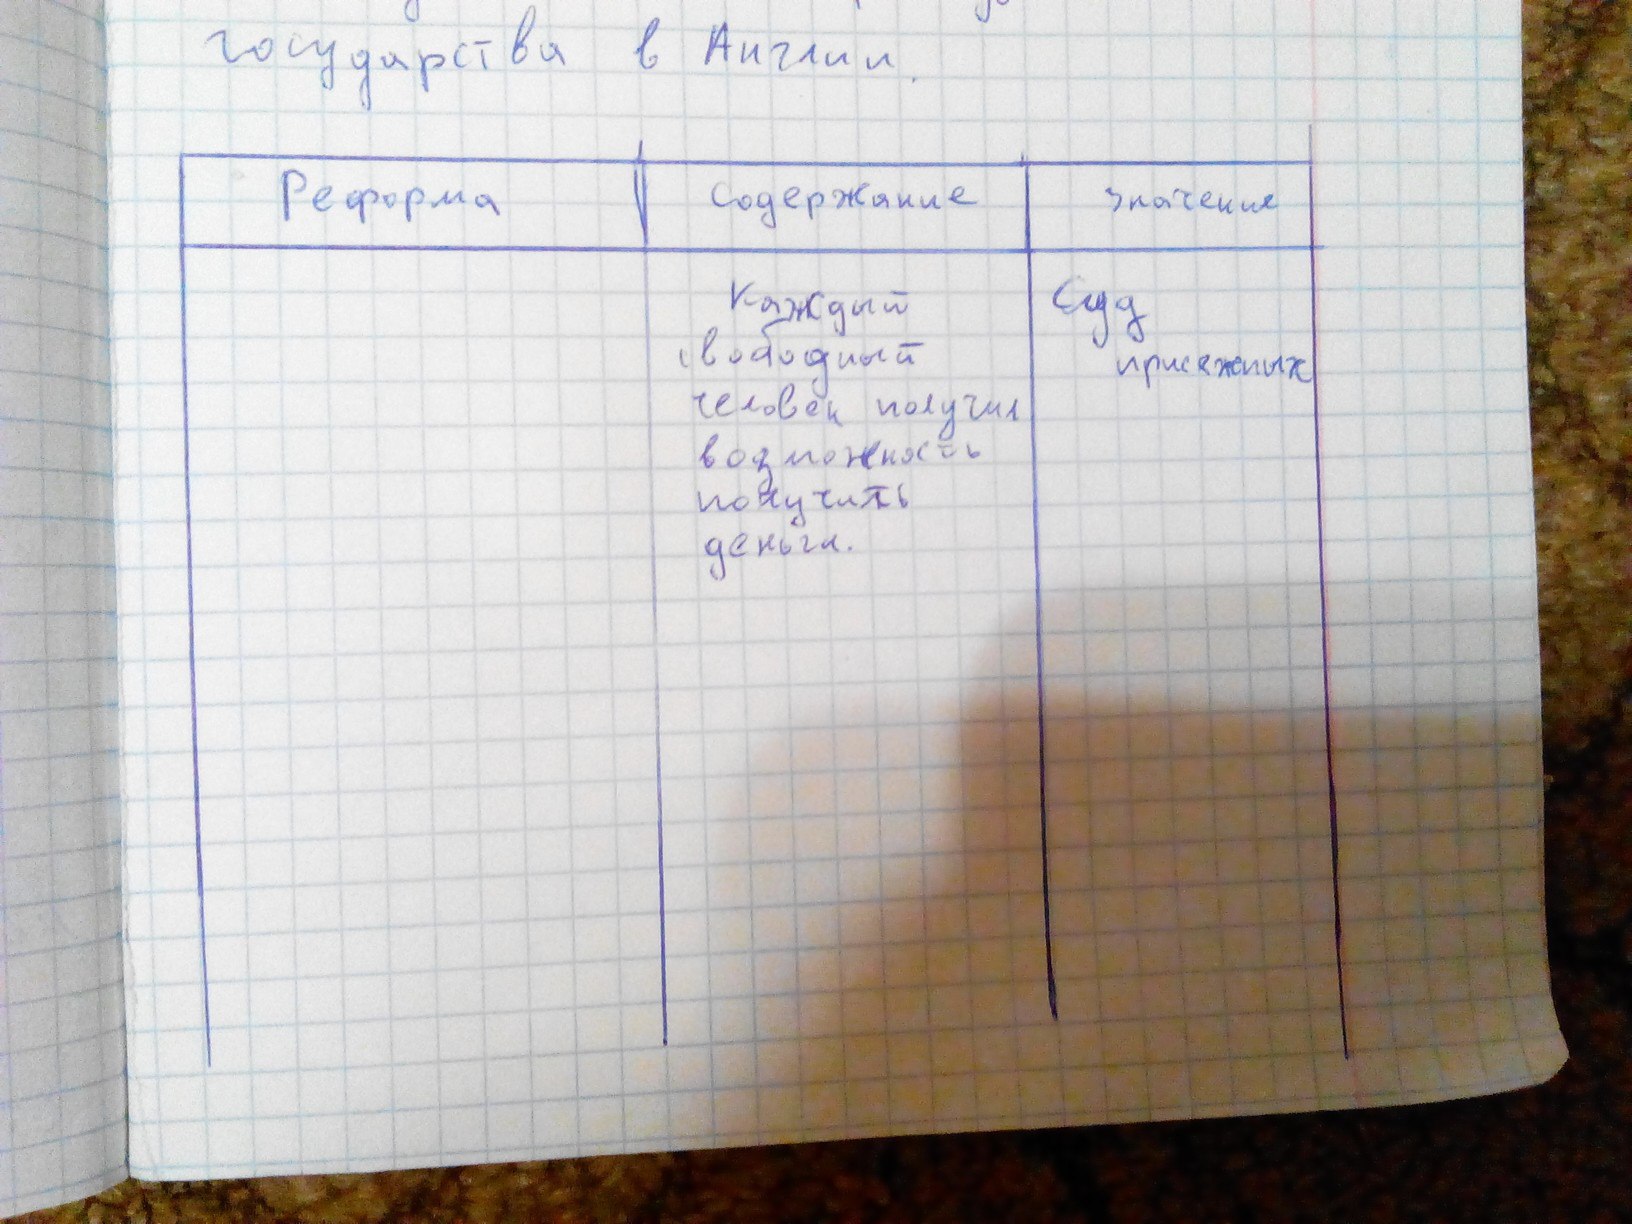 государства в Англии.
Реформа Содержание Значение
Каждый
свободный
человек получил
возможность
получить
деньги.
Суд
присяжных